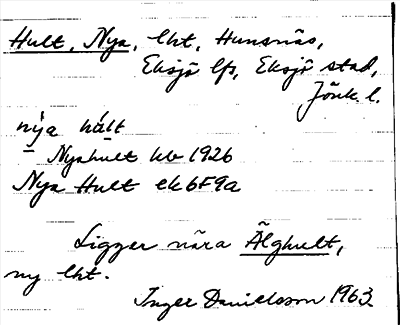 Hult, Nya, lht, Hunsnäs,
Eksjö lfs, Eksjö stad,
Jönk. l.
nỳa hált
Nyahult hb 1926
Nya Hult ek 6F9a
Ligger nära Älghult,
ny lht.
Inger Danielsson 1963